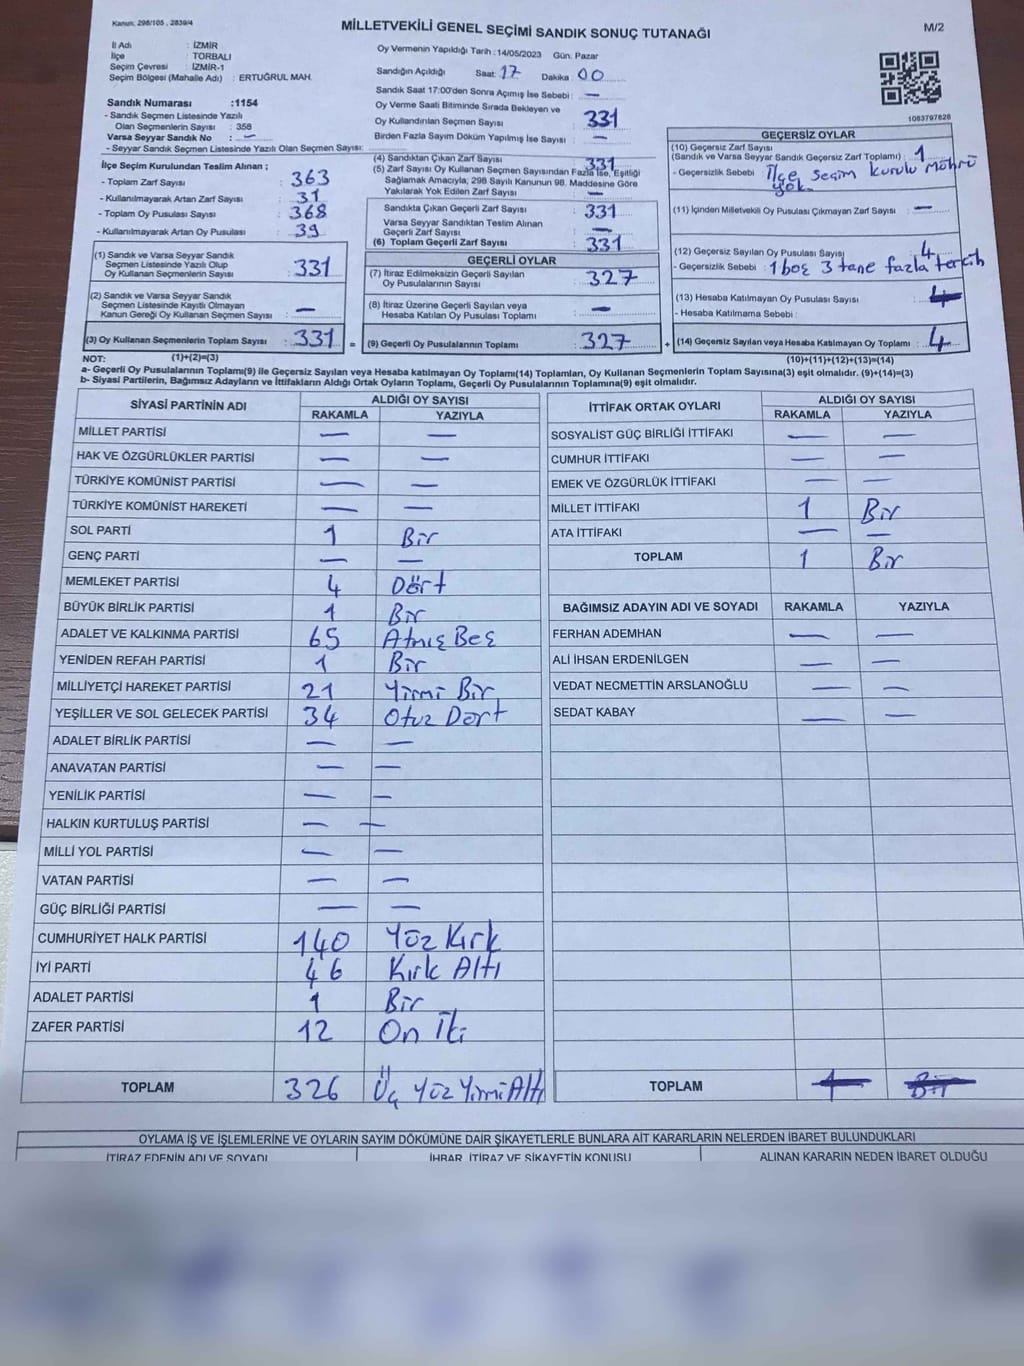 Kanun: 298/105 , 2839/4
MİLLETVEKİLİ GENEL SEÇİMİ SANDIK SONUÇ TUTANAĞI
M/2
İl Adı : İZMİR
İlçe : TORBALI
Seçim Çevresi : İZMİR-1
Seçim Bölgesi (Mahalle Adı) : ERTUĞRUL MAH.
Sandık Numarası :1154
- Sandık Seçmen Listesinde Yazılı
Olan Seçmenlerin Sayısı : 358
Varsa Seyyar Sandık No : —
- Seyyar Sandık Seçmen Listesinde Yazılı Olan Seçmen Sayısı:
İlçe Seçim Kurulundan Teslim Alınan ;
- Toplam Zarf Sayısı : 363
- Kullanılmayarak Artan Zarf Sayısı : 31
- Toplam Oy Pusulası Sayısı : 368
- Kullanılmayarak Artan Oy Pusulası : 39
(1) Sandık ve Varsa Seyyar Sandık
Seçmen Listesinde Yazılı Olup
Oy Kullanan Seçmenlerin Sayısı : 331
(2) Sandık ve Varsa Seyyar Sandık
Seçmen Listesinde Kayıtlı Olmayan
Kanun Gereği Oy Kullanan Seçmen Sayısı : —
(3) Oy Kullanan Seçmenlerin Toplam Sayısı : 331 =
Oy Vermenin Yapıldığı Tarih :14/05/2023 Gün: Pazar
Sandığın Açıldığı Saat: 17 Dakika : 00
Sandık Saat 17:00'den Sonra Açımış İse Sebebi : —
Oy Verme Saati Bitiminde Sırada Bekleyen ve
Oy Kullandırılan Seçmen Sayısı : 331
Birden Fazla Sayım Döküm Yapılmış İse Sayısı : —
(4) Sandıktan Çıkan Zarf Sayısı : 331
(5) Zarf Sayısı Oy Kullanan Seçmen Sayısından Fazla İse, Eşitliği
Sağlamak Amacıyla, 298 Sayılı Kanunun 98. Maddesine Göre
Yakılarak Yok Edilen Zarf Sayısı : —
Sandıkta Çıkan Geçerli Zarf Sayısı : 331
Varsa Seyyar Sandıktan Teslim Alınan
Geçerli Zarf Sayısı : —
(6) Toplam Geçerli Zarf Sayısı : 331
GEÇERLİ OYLAR
(7) İtiraz Edilmeksizin Geçerli Sayılan
Oy Pusulalarının Sayısı : 327
(8) İtiraz Üzerine Geçerli Sayılan veya
Hesaba Katılan Oy Pusulası Toplamı : —
(9) Geçerli Oy Pusulalarının Toplamı : 327 +
1083797828
GEÇERSİZ OYLAR
(10) Geçersiz Zarf Sayısı
(Sandık ve Varsa Seyyar Sandık Geçersiz Zarf Toplamı) : 1
- Geçersizlik Sebebi : İlçe Seçim kurulu Möhrü
yok.
(11) İçinden Milletvekili Oy Pusulası Çıkmayan Zarf Sayısı : —
(12) Geçersiz Sayılan Oy Pusulası Sayısı : 4
- Geçersizlik Sebebi : 1 boş 3 tane fazla tercih
(13) Hesaba Katılmayan Oy Pusulası Sayısı :
- Hesaba Katılmama Sebebi :
(14) Geçersiz Sayılan veya Hesaba Katılmayan Oy Toplamı : 4
NOT: (1)+(2)=(3)
(10)+(11)+(12)+(13)=(14)
a- Geçerli Oy Pusulalarının Toplamı(9) ile Geçersiz Sayılan veya Hesaba katılmayan Oy Toplamı(14) Toplamları, Oy Kullanan Seçmenlerin Toplam Sayısına(3) eşit olmalıdır. (9)+(14)=(3)
b- Siyasi Partilerin, Bağımsız Adayların ve İttifakların Aldığı Ortak Oyların Toplamı, Geçerli Oy Pusulalarının Toplamına(9) eşit olmalıdır.
SİYASİ PARTİNİN ADI ALDIĞI OY SAYISI
RAKAMLA YAZIYLA
MİLLET PARTİSİ — —
HAK VE ÖZGÜRLÜKLER PARTİSİ — —
TÜRKİYE KOMÜNİST PARTİSİ — —
TÜRKİYE KOMÜNİST HAREKETİ — —
SOL PARTİ 1 Bir
GENÇ PARTİ — —
MEMLEKET PARTİSİ 4 Dört
BÜYÜK BİRLİK PARTİSİ 1 Bir
ADALET VE KALKINMA PARTİSİ 65 Atmış Beş
YENİDEN REFAH PARTİSİ 1 Bir
MİLLİYETÇİ HAREKET PARTİSİ 21 Yirmi Bir
YEŞİLLER VE SOL GELECEK PARTİSİ 34 Otuz Dört
ADALET BİRLİK PARTİSİ — —
ANAVATAN PARTİSİ — —
YENİLİK PARTİSİ — —
HALKIN KURTULUŞ PARTİSİ — —
MİLLİ YOL PARTİSİ — —
VATAN PARTİSİ — —
GÜÇ BİRLİĞİ PARTİSİ — —
CUMHURİYET HALK PARTİSİ 140 Yöz Kırk
İYİ PARTİ 46 Kırk Altı
ADALET PARTİSİ 1 Bir
ZAFER PARTİSİ 12 On İki
TOPLAM 326 Üç Yöz Yirmi Altı
İTTİFAK ORTAK OYLARI ALDIĞI OY SAYISI
RAKAMLA YAZIYLA
SOSYALİST GÜÇ BİRLİĞİ İTTİFAKI — —
CUMHUR İTTİFAKI — —
EMEK VE ÖZGÜRLÜK İTTİFAKI — —
MİLLET İTTİFAKI 1 Bir
ATA İTTİFAKI — —
TOPLAM 1 Bir
BAĞIMSIZ ADAYIN ADI VE SOYADI RAKAMLA YAZIYLA
FERHAN ADEMHAN — —
ALİ İHSAN ERDENİLGEN — —
VEDAT NECMETTİN ARSLANOĞLU — —
SEDAT KABAY — —
TOPLAM 1 Bir
OYLAMA İŞ VE İŞLEMLERİNE VE OYLARIN SAYIM DÖKÜMÜNE DAİR ŞİKAYETLERLE BUNLARA AİT KARARLARIN NELERDEN İBARET BULUNDUKLARI
İTİRAZ EDENİN ADI VE SOYADI İHBAR, İTİRAZ VE ŞİKAYETİN KONUSU ALINAN KARARIN NEDEN İBARET OLDUĞU